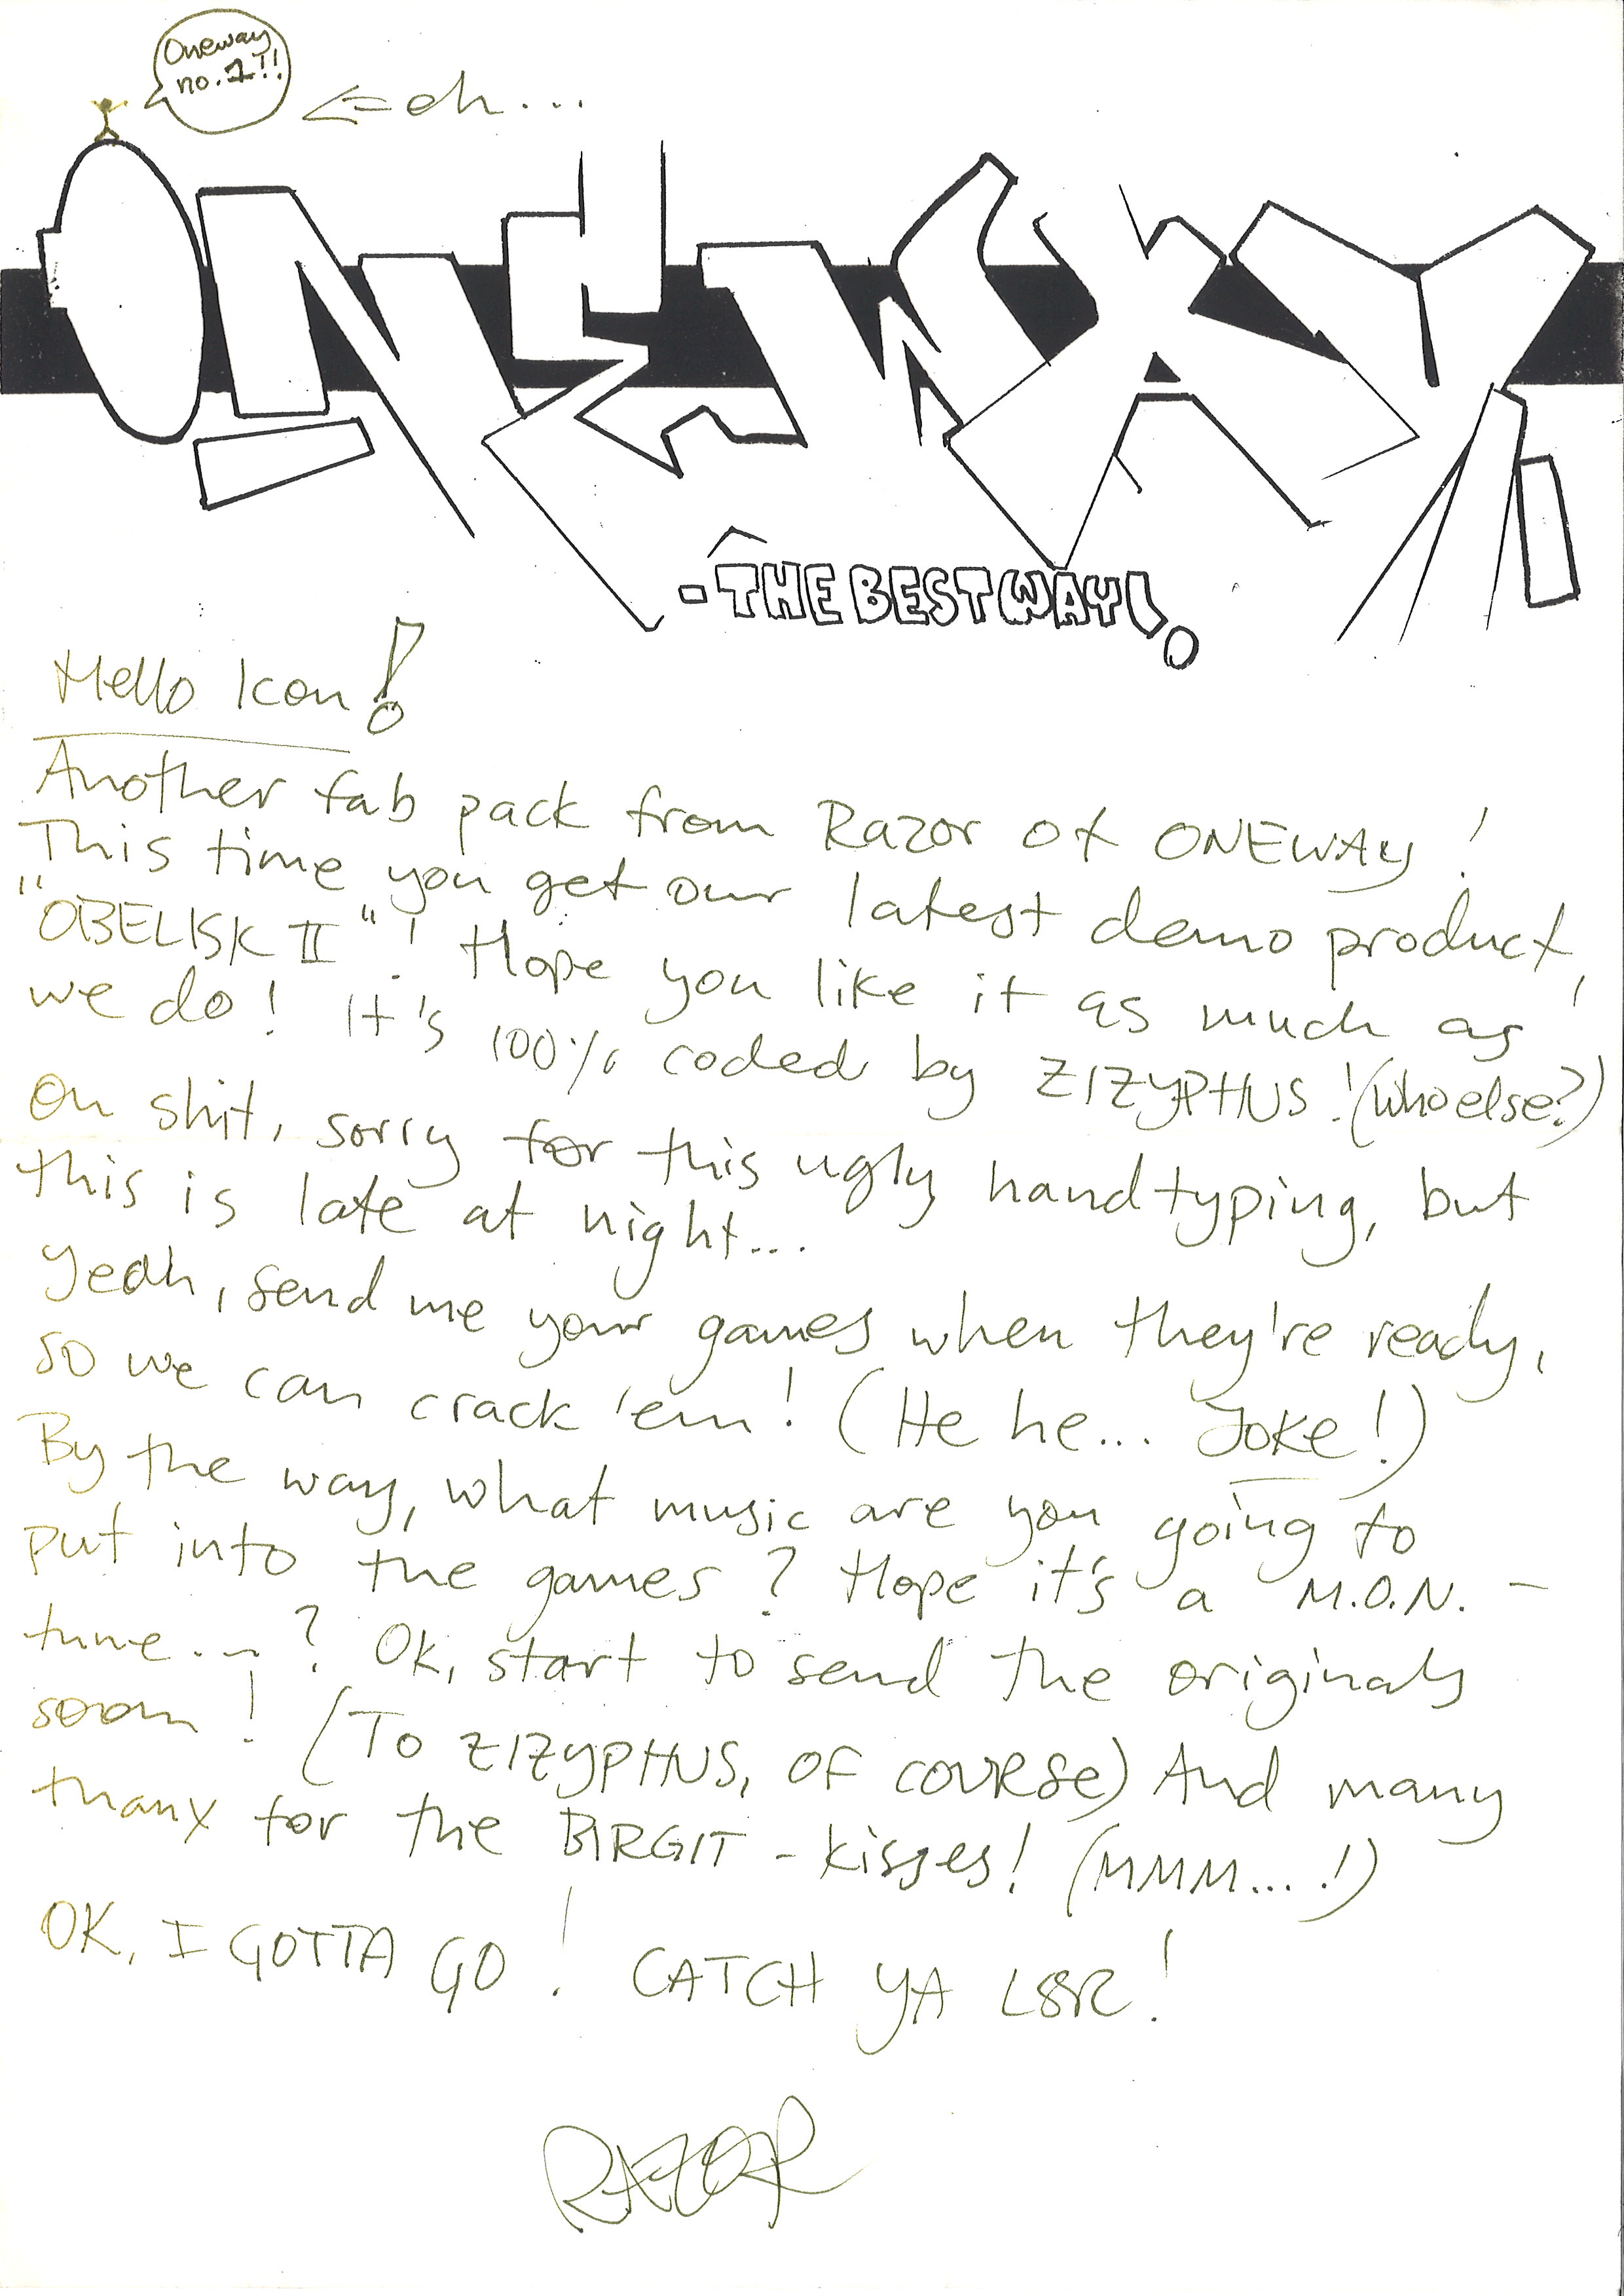 Oneway
no.1!!
<= eh...
ONEWAY
- THE BEST WAY!
Hello Icon!
Another fab pack from Razor of ONEWAY!
This time you get our latest demo product,
"OBELISK II"! Hope you like it as much as
we do! It's 100% coded by ZIZYPHUS! (Who else?)
Oh shit, sorry for this ugly handtyping, but
this is late at night...
Yeah, send me your games when they're ready,
so we can crack 'em! (He he... Joke!)
By the way, what music are you going to
put into the games? Hope it's a M.O.N. -
tune...? Ok, start to send the originals
soon! (To ZIZYPHUS, OF COURSE) And many
thanx for the BIRGIT - kisses! (MMM...!)
OK, I GOTTA GO! CATCH YA L8R!
RAZOR